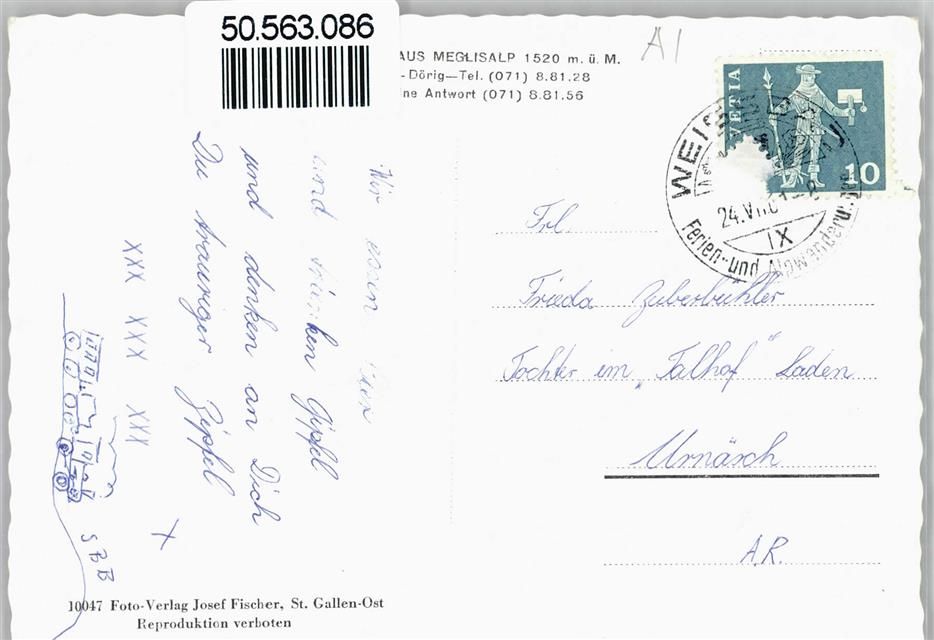 50.563.086
AUS MEGLISALP 1520 m. ü. M.
-Dörig—Tel. (071) 8.81.28
ne Antwort (071) 8.81.56
A1
VETIA
10
WEI
24.VII.
IX
Ferien- und
Wir essen
und trinken Gipfel
und denken an Dich
Du trauriger Zipfel
XXX XXX XXX
X
SBB
Frl.
Frieda Zuberbühler
Tochter im "Talhof" Laden
Urnäsch
A.R.
10047 Foto-Verlag Josef Fischer, St. Gallen-Ost
Reproduktion verboten